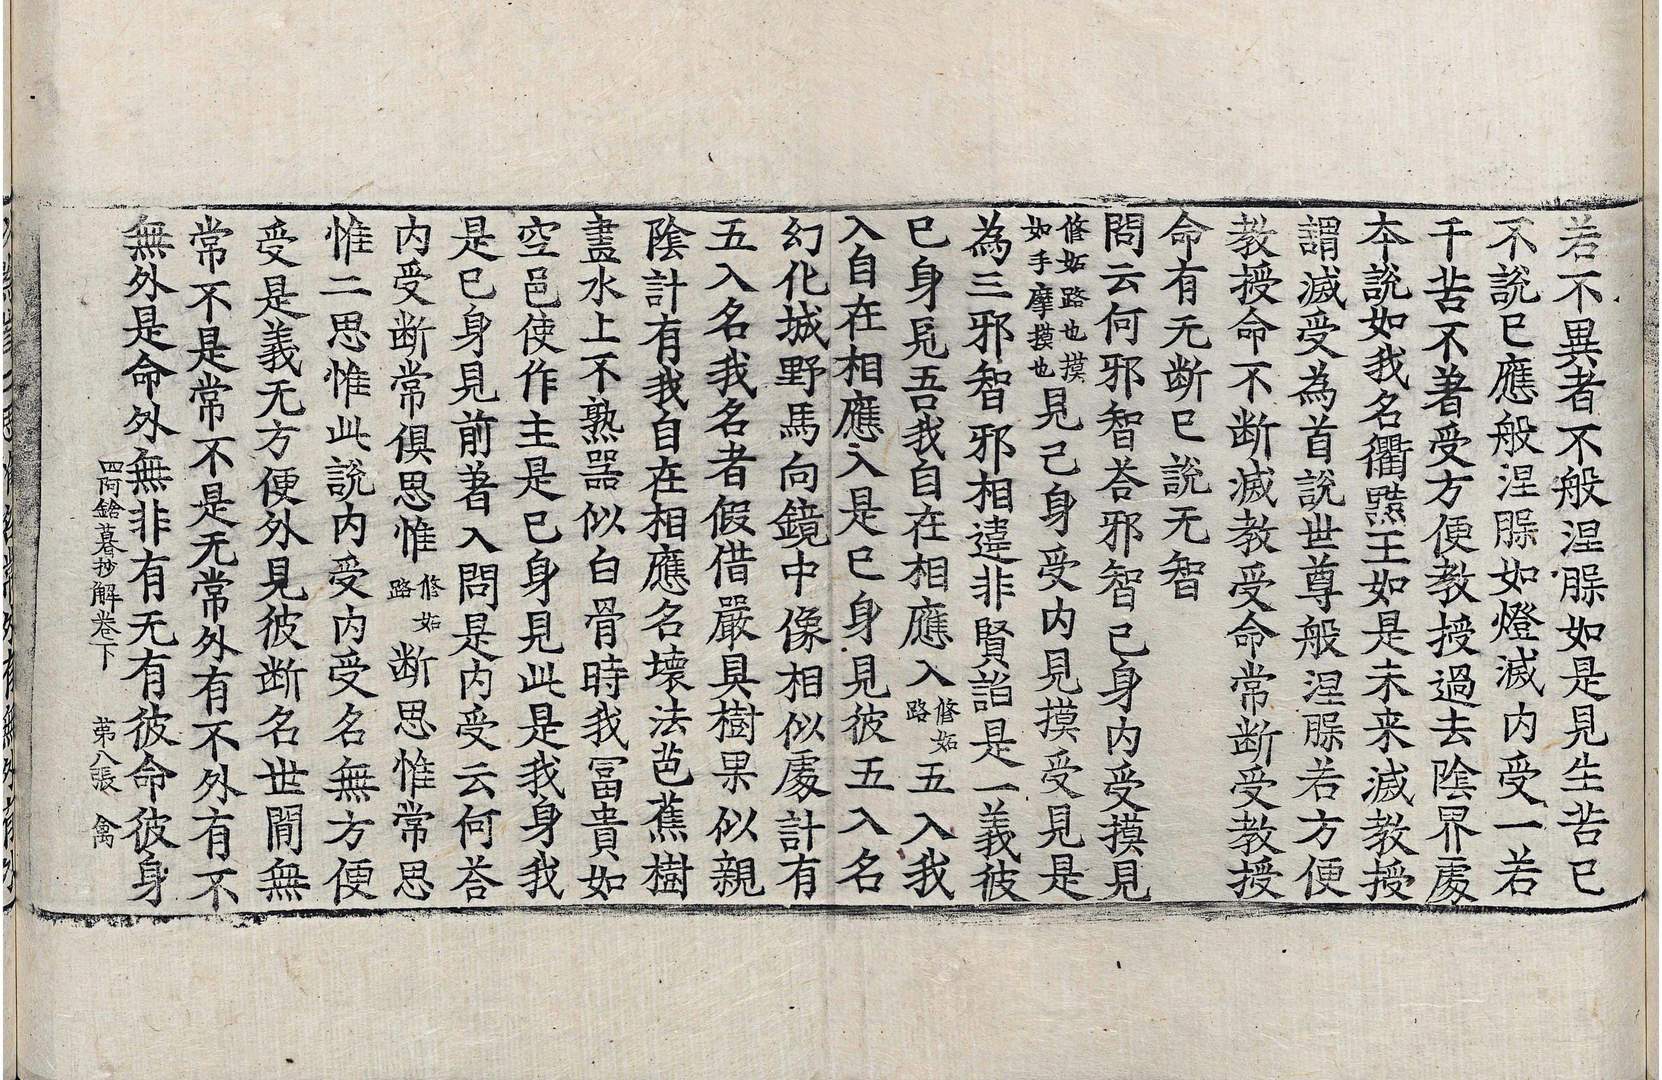 若不異者不般涅槃如是見生苦已
不說已應般涅槃如燈滅内受一若
千苦不著受方便教授過去陰界處
本說如我名衢㸃王如是未来滅教授
謂滅受為首說世尊般涅槃若方便
教授命不断滅教受命常断受教授
命有无断已說无智
問云何邪智荅邪智已身内受摸見
修妬路也摸如手摩摸也見己身受内見摸受見是
為三邪智邪相違非賢詒是一義彼
已身見吾我自在相應入修妬路五入我
入自在相應入是已身見彼五入名
幻化城野馬向鏡中像相似處計有
五入名我名者假借嚴具樹果似親
陰計有我自在相應名壞法芭蕉樹
盡水上不熟器似白骨時我冨貴如
空邑使作主是已身見此是我身我
是已身見前著入問是内受云何荅
内受断常俱思惟修妬路断思惟常思
惟二思惟此說内受内受名無方便
受是義无方便外見彼断名世間無
常不是常不是无常外有不外有不
無外是命外無非有无有彼命彼身
四阿鋡暮抄解卷下 苐八張 禽